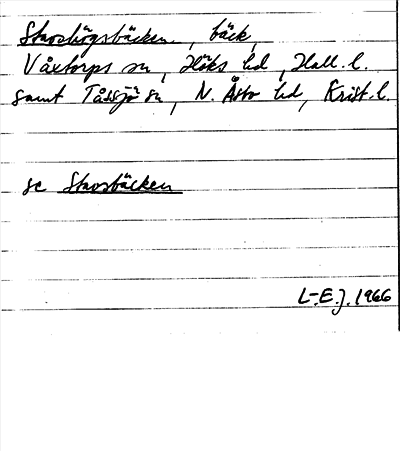 Stavshögsbäcken, bäck,
Våxtorps sn, Höks hd, Hall. l.
samt Tåssjö sn, N. Åsbo hd, Krist. l.
se Stavsbäcken
L-E.J. 1966